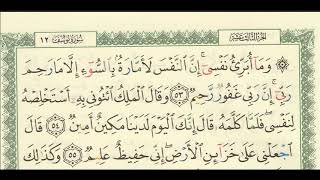 الجزء الثالث عشر سورة يوسف ١٢
۞ وَمَا أُبَرِّئُ نَفْسِي ۚ إِنَّ النَّفْسَ لَأَمَّارَةٌ بِالسُّوءِ إِلَّا مَا رَحِمَ
رَبِّي ۚ إِنَّ رَبِّي غَفُورٌ رَّحِيمٌ ٥٣ وَقَالَ الْمَلِكُ ائْتُونِي بِهِ أَسْتَخْلِصْهُ
لِنَفْسِي ۖ فَلَمَّا كَلَّمَهُ قَالَ إِنَّكَ الْيَوْمَ لَدَيْنَا مَكِينٌ أَمِينٌ ٥٤ قَالَ
اجْعَلْنِي عَلَىٰ خَزَائِنِ الْأَرْضِ ۖ إِنِّي حَفِيظٌ عَلِيمٌ ٥٥ وَكَذَٰلِكَ